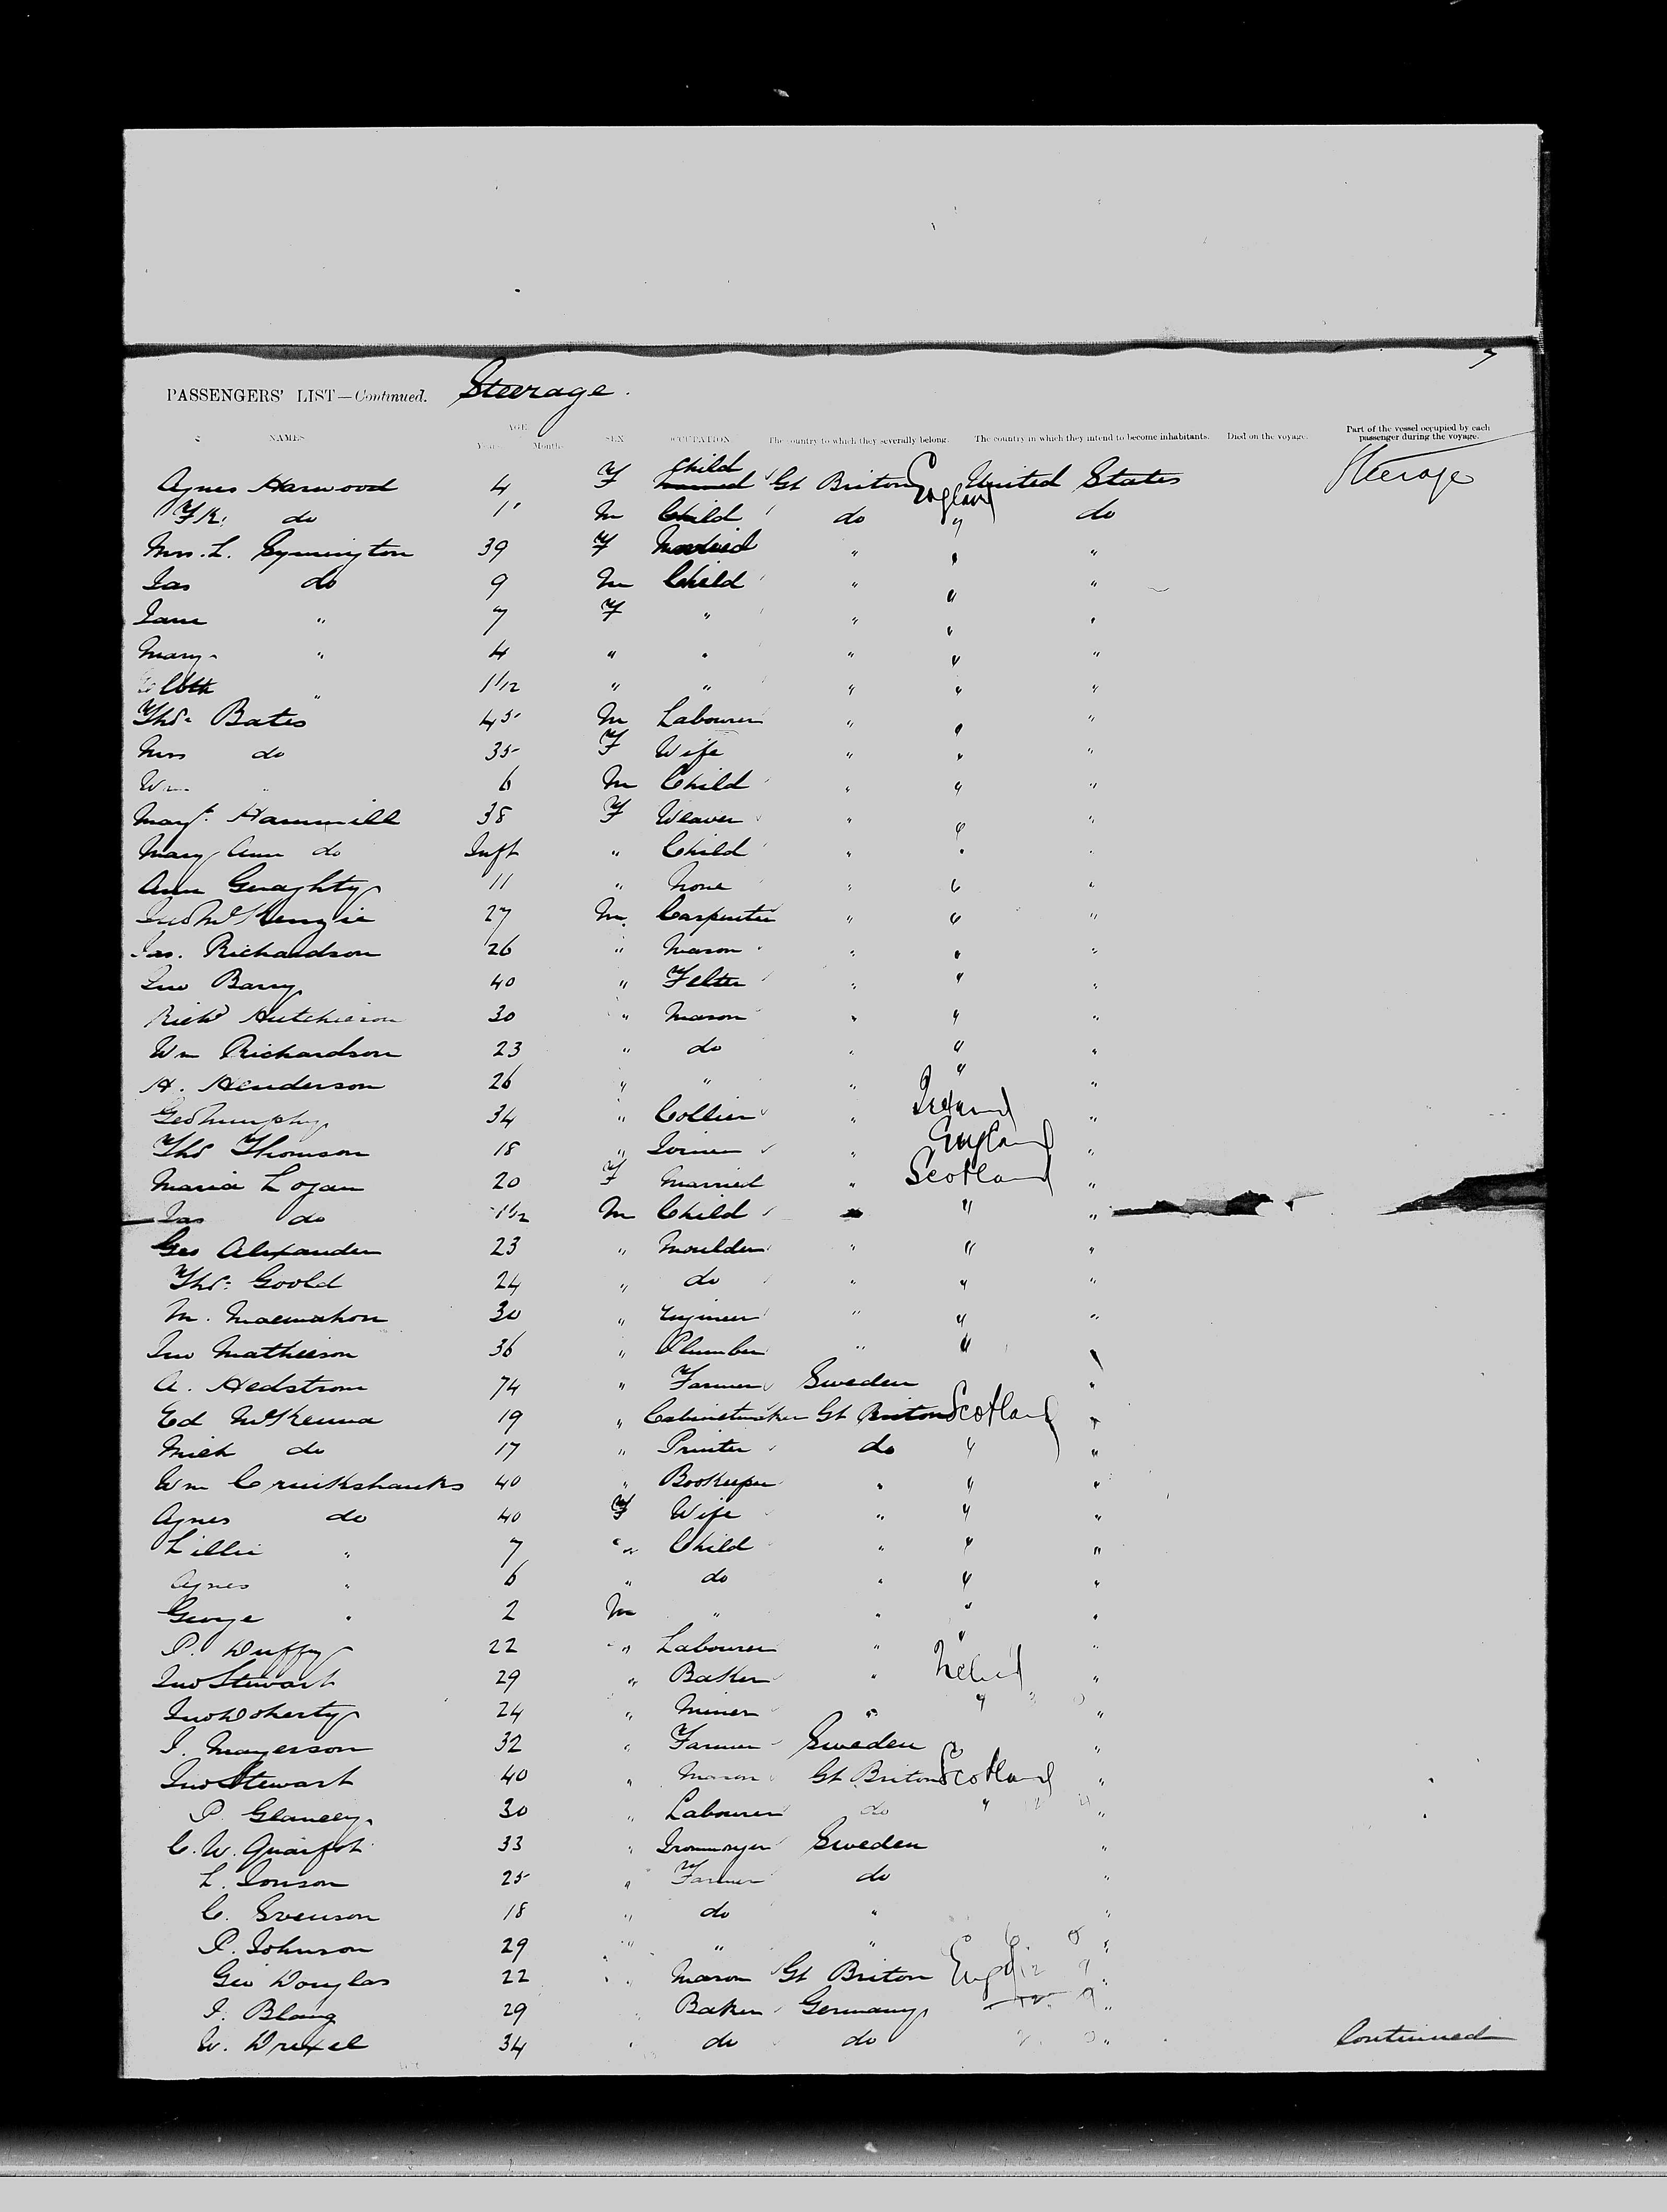 7
PASSENGERS' LIST—Continued. Steerage.
NAMES AGE Years Months SEX OCCUPATION The country to which they severally belong. The country in which they intend to become inhabitants. Died on the voyage. Part of the vessel occupied by each passenger during the voyage.
Agnes Harwood 4 F Child Gt Briton England United States Steerage
do 1 M Child do " do
Mrs. L. Symington 39 F Married " " "
Jas do 9 M Child " " "
Jane " 7 F " " " "
Mary " 4 " " " " "
" 1 1/12 " " " " "
Thos. Bates 45 M Labourer " " "
Mrs do 35 F Wife " " "
Wm " 6 M Child " " "
Margt. Hammill 38 F Weaver " " "
Mary Ann do Inft " Child " " "
Ann Geraghty 11 " None " " "
McKenzie 27 M. Carpenter " " "
Jas. Richardson 26 " Mason " " "
Jno Barry 40 " " " "
Richd Hutchieson 30 " Mason " " "
Wm Richardson 23 " do " " "
H. Henderson 26 " " " " "
Geo Murphy 34 " Collier " Ireland "
Thos Thomson 18 " Joiner " England "
Maria Logan 20 F Married " Scotland "
Jas do M Child " " "
Geo Alexander 23 " Moulder " " "
Thos. Goold 24 " do " " "
M. Macmahon 30 " Engineer " " "
Jno Mathieson 36 " Plumber " " "
A. Hedstrom 74 " Farmer Sweden "
Ed McKenna 19 " Cabinetmker Gt Briton Scotland "
Mich do 17 " Printer do " "
Wm Cruikshanks 40 " Bookeeper " " "
Agnes do 40 F Wife " " "
Lillie " 7 " Child " " "
Agnes " 6 " do " " "
George " 2 M " " " "
P. Duffy 22 " Labourer " " "
Jno Stewart 29 " Baker " "
Jno Doherty 24 " Miner " " "
J. Mayerson 32 " Farmer Sweden "
Jno Stewart 40 " Mason Gt Briton Scotland "
P. Glancey 30 " Labourer do " "
C. W. 33 " Ironmonger Sweden "
L. Jonson 25 " Farmer do "
C. Svenson 18 " do " "
P. Johnson 29 " " " "
Geo Douglas 22 " Mason Gt Briton "
J. 29 Baker Germany "
W. Drexel 34 " do do "
Continued